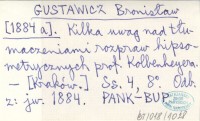 GUSTAWICZ Bronisław
[1884 a]. Kilka uwag nad tłu-
maczeniami rozpraw hipso-
metrycznych prof. Kolbenheyera.
— [Kraków.] Ss. 4, 8°. Odb.
z: jw. 1884. PANK-BUP.